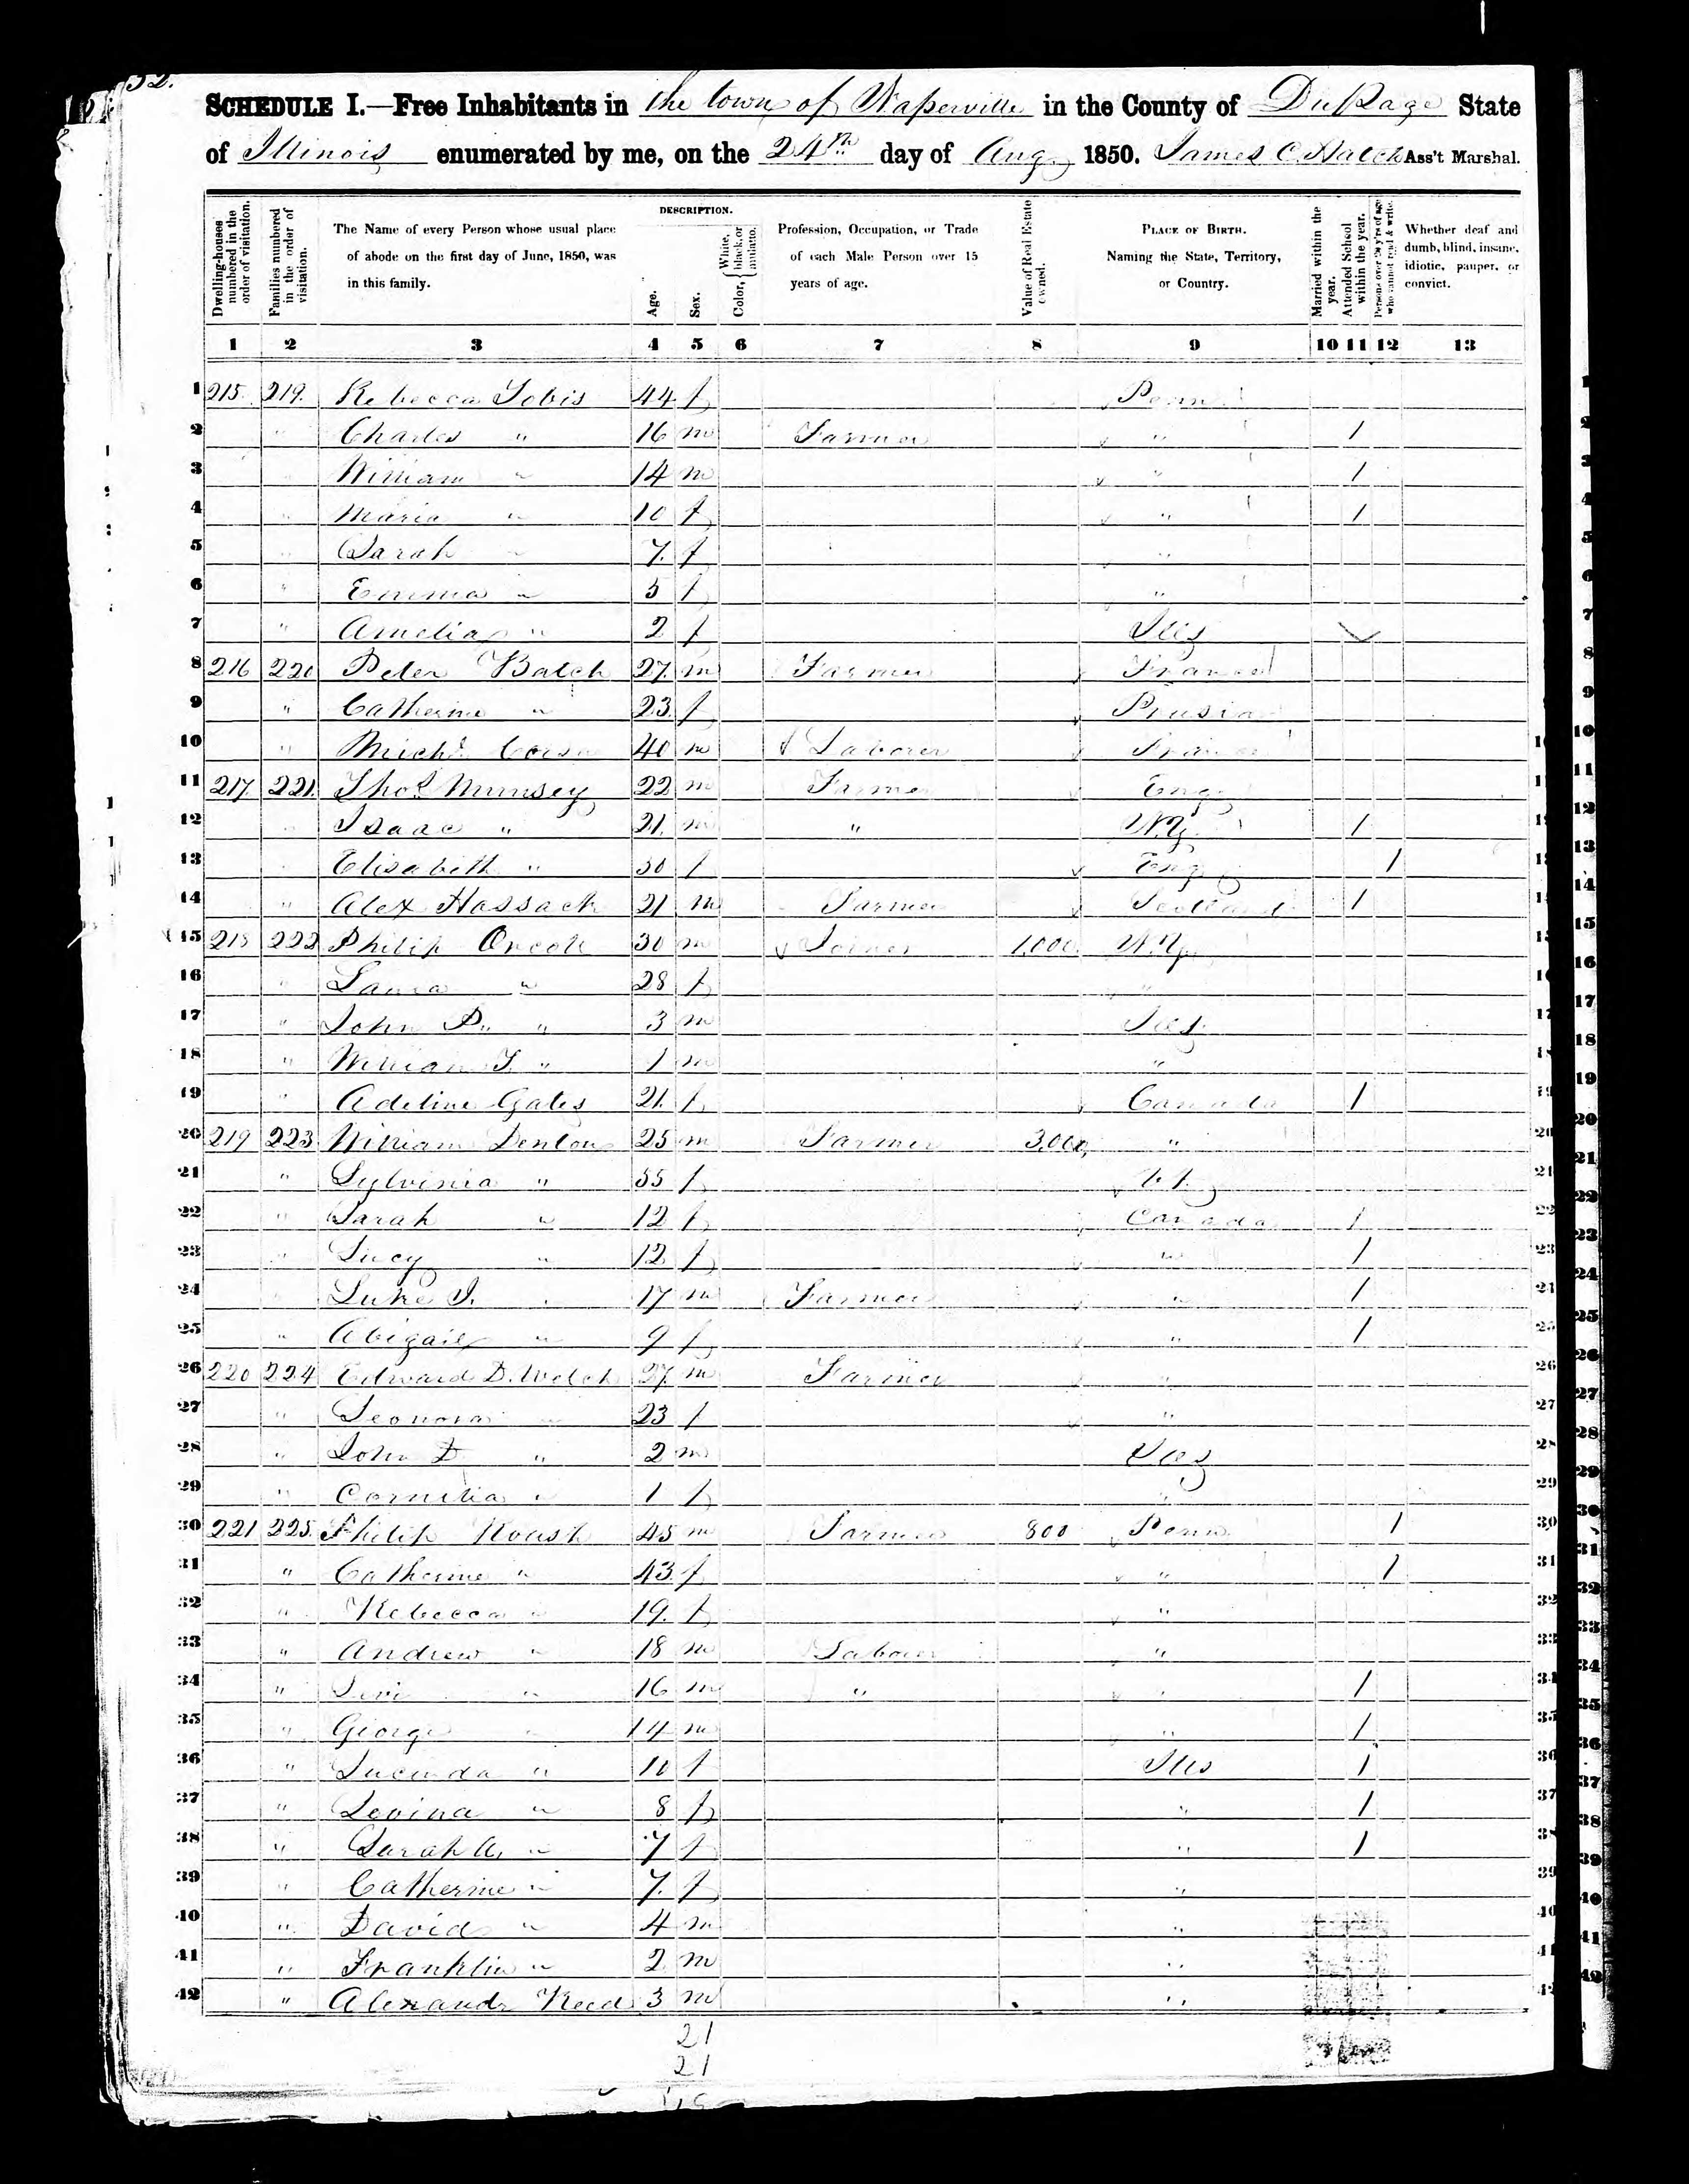 52.
SCHEDULE I.—Free Inhabitants in the town of Naperville in the County of DuPage State
of Illinois enumerated by me, on the 24th day of Aug 1850. James C. Hatch Ass't Marshal.
Dwelling-houses numbered in the order of visitation.
Families numbered in the order of visitation.
The Name of every Person whose usual place of abode on the first day of June, 1850, was in this family.
DESCRIPTION.
Age.
Sex.
Color, White, black, or mulatto.
Profession, Occupation, or Trade of each Male Person over 15 years of age.
Value of Real Estate owned.
PLACE OF BIRTH. Naming the State, Territory, or Country.
Married within the year.
Attended School within the year.
Persons over 20 y'rs of age who cannot read & write.
Whether deaf and dumb, blind, insane, idiotic, pauper, or convict.
1 2 3 4 5 6 7 8 9 10 11 12 13
1 215 219 Rebecca 44 f Penn
2 " Charles " 16 m Farmer " 1
3 " William " 14 m " 1
4 " Maria " 10 f " 1
5 " Sarah " 7 f "
6 " Emma " 5 f "
7 " Amelia " 2 f Ills
8 216 220 Peter Batch 27 m Farmer France
9 " Catherine " 23 f Prusia
10 " Michl 40 m Laborer France
11 217 221 Thos Mumsey 22 m Farmer Eng
12 " Isaac " 21 m " N.Y. 1
13 " Elisabeth " 50 f Eng 1
14 " Alex Hossack 21 m Farmer Scotland 1
15 218 222 Philip Orcott 30 m Joiner 1,000 N.Y.
16 " Laura " 28 f "
17 " John P. " 3 m Ills
18 " William T. " 1 m "
19 " Adeline Gates 21 f Canada 1
20 219 223 William Denton 25 m Farmer 3,000 "
21 " Sylvinia " 55 f Vt.
22 " Sarah " 12 f Canada 1
23 " Lucy " 12 f " 1
24 " Luke I. " 17 m Farmer " 1
25 " Abigail " 9 f " 1
26 220 224 Edward D. Welch 27 m Farmer "
27 " Leonora " 23 f "
28 " John D " 2 m Ills
29 " Cornelia " 1 f "
30 221 225 Philip Roush 45 m Farmer 800 Penn 1
31 " Catherine " 43 f " 1
32 " Rebecca " 19 f "
33 " Andrew " 18 m Laborer "
34 " Levi " 16 m " " 1
35 " George " 14 m " 1
36 " Lucinda " 10 f Ills 1
37 " Levina " 8 f " 1
38 " Sarah A. " 7 f " 1
39 " Catherine " 7 f "
40 " David " 4 m "
41 " Franklin " 2 m "
42 " Alexandr Reed 3 m "
21
21